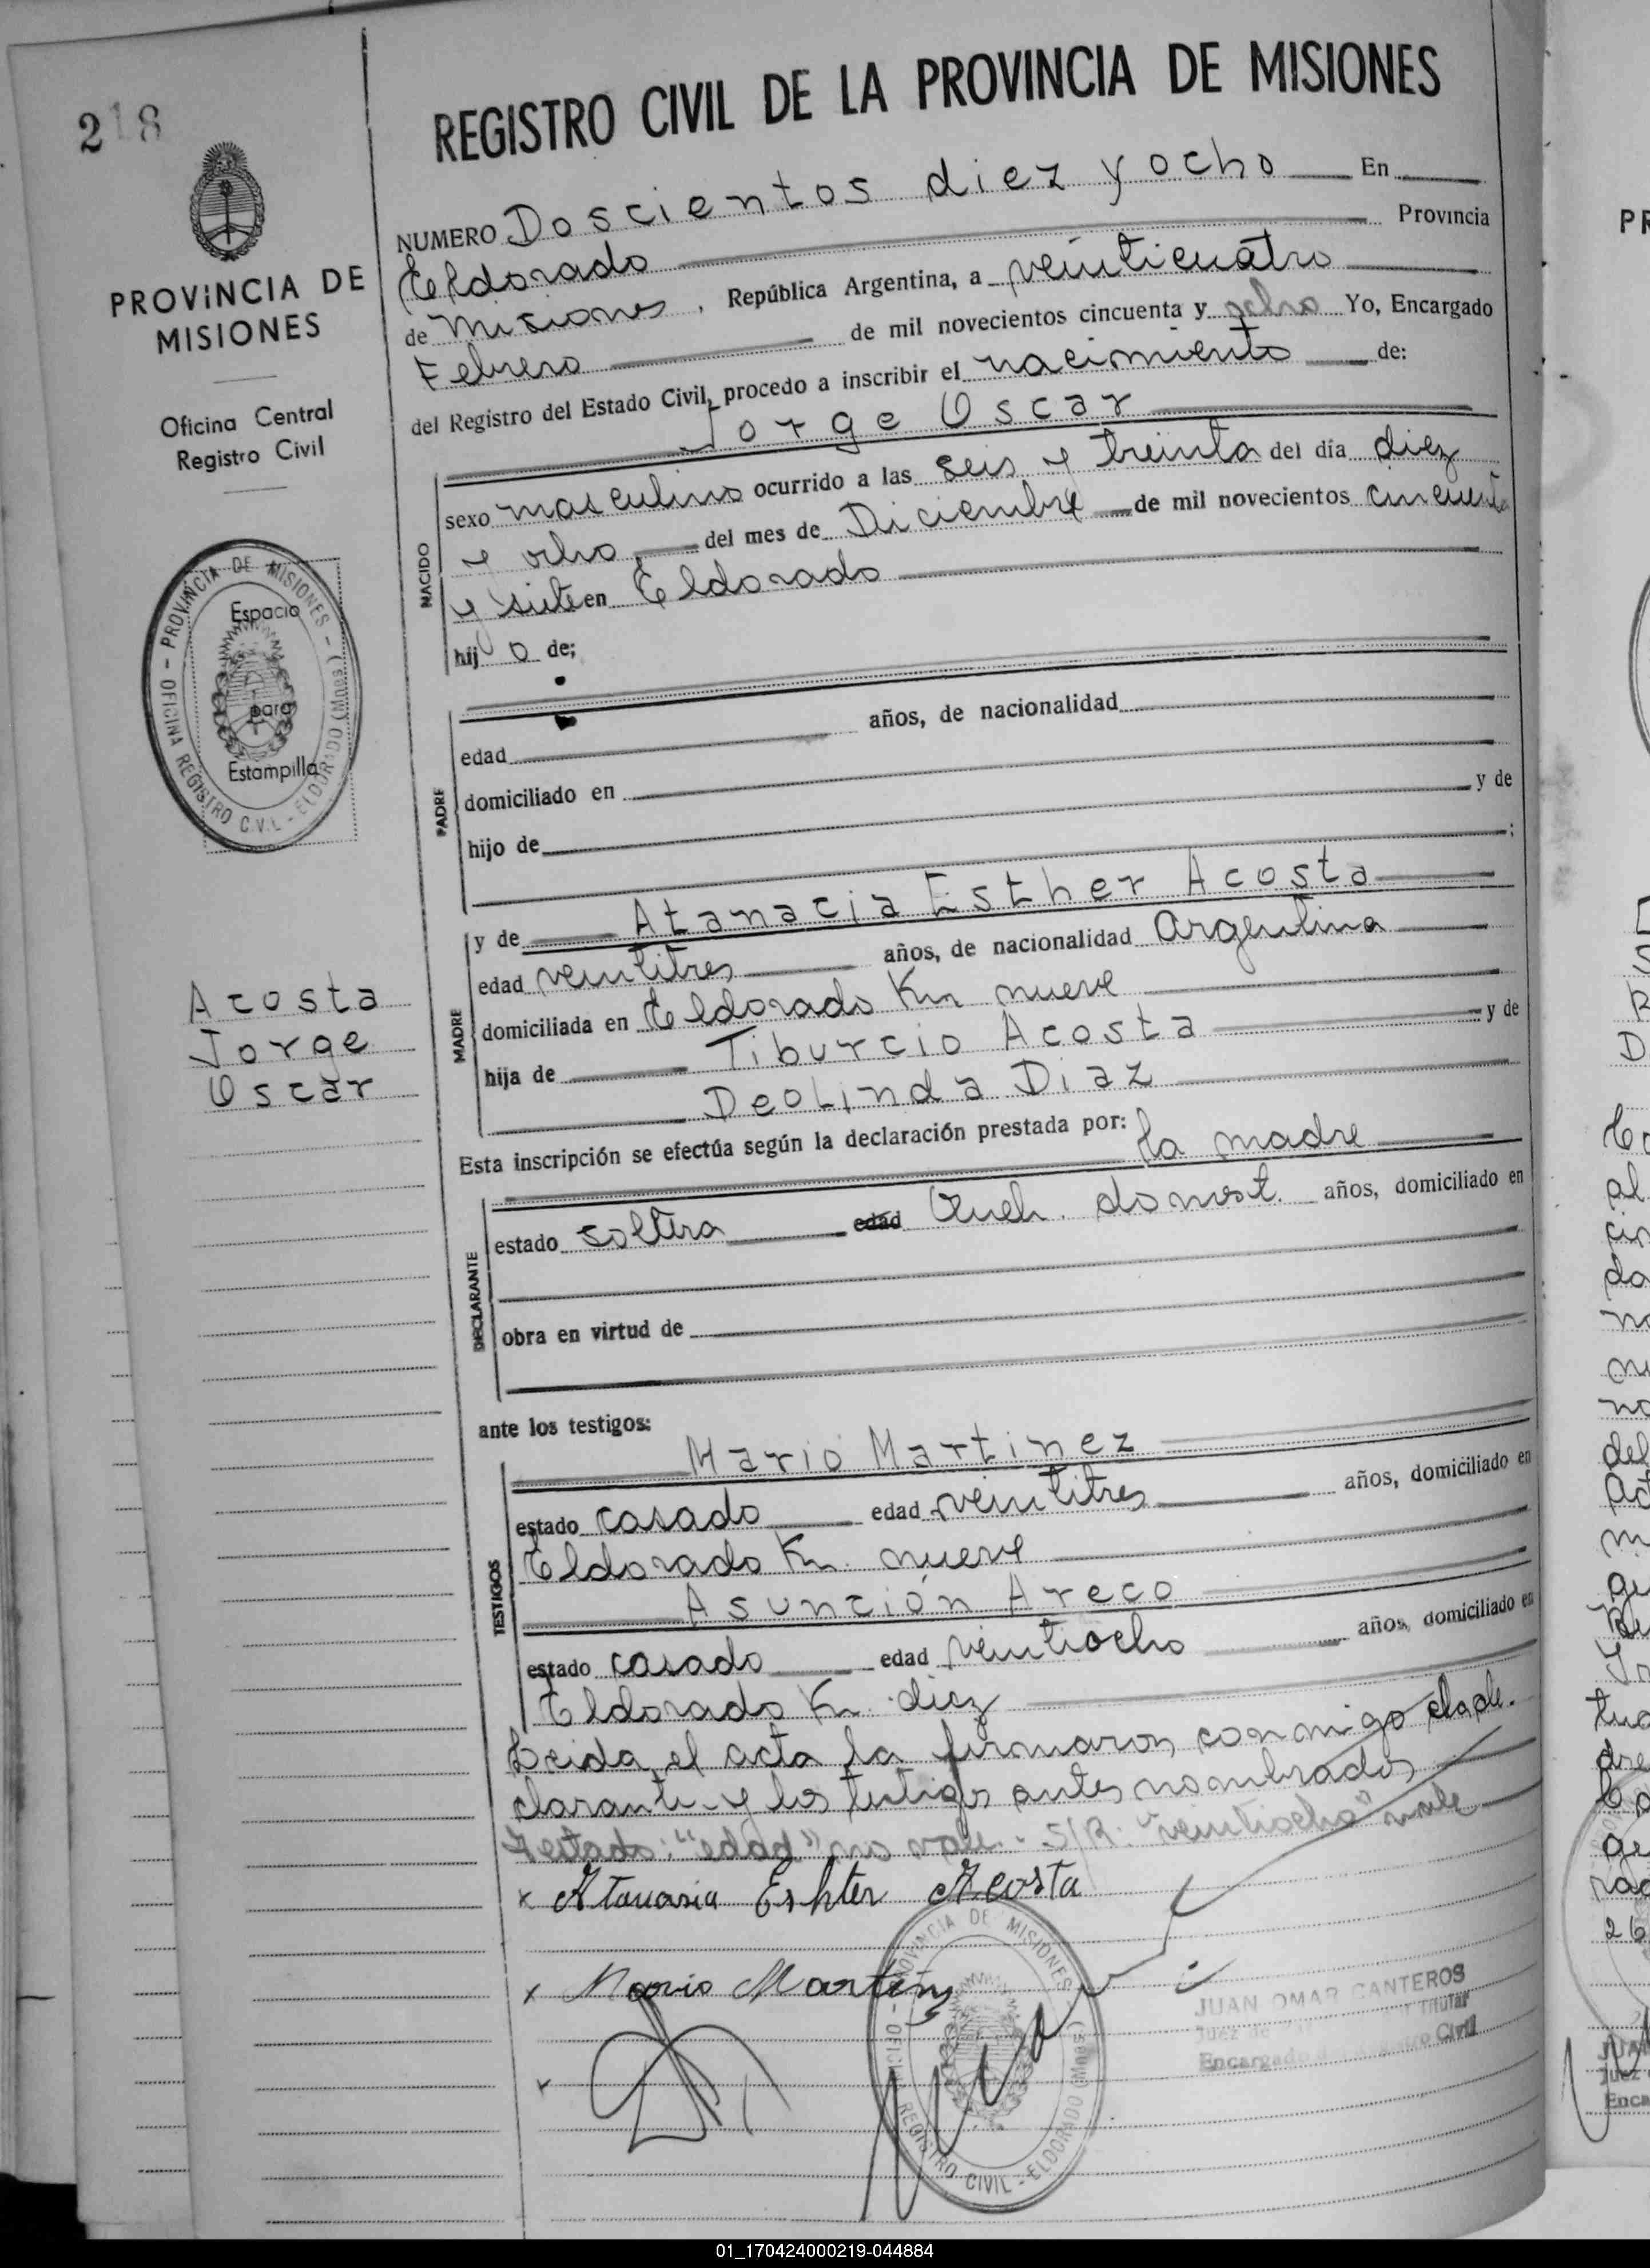 218
PROVINCIA DE
MISIONES
Oficina Central
Registro Civil
PROVINCIA DE MISIONES - ELDORADO (Mnes.)
OFICINA REGISTRO CIVIL
Espacio
para
Estampilla
Acosta
Jorge
Oscar
REGISTRO CIVIL DE LA PROVINCIA DE MISIONES
NUMERO Doscientos diez y ocho En
Eldorado Provincia
de Misiones, República Argentina, a veinticuatro
Febrero de mil novecientos cincuenta y ocho Yo, Encargado
del Registro del Estado Civil, procedo a inscribir el nacimiento de:
Jorge Oscar
NACIDO
sexo masculino ocurrido a las seis y treinta del día diez
y ocho, del mes de Diciembre de mil novecientos cincuenta
y siete en Eldorado
hijo de;
PADRE
edad años, de nacionalidad
domiciliado en
hijo de y de
;
MADRE
y de Atanacia Esther Acosta
edad veintitres años, de nacionalidad Argentina
domiciliada en Eldorado Km nueve
hija de Tiburcio Acosta y de
Deolinda Diaz
Esta inscripción se efectúa según la declaración prestada por:
la madre
DECLARANTE
estado soltera edad Queh. domest. años, domiciliado en
obra en virtud de
ante los testigos:
TESTIGOS
Mario Martinez
estado casado edad veintitres años, domiciliado en
Eldorado Km. nueve
Asunción Areco
estado casado edad veintiocho años, domiciliado en
Eldorado Km. diez
Leida el acta la firmaron conmigo la de-
clarante y los testigos antes nombrados
Testado: "edad" no vale.- S/R: "veintiocho" vale
x Atanasia Eshter Acosta
x Mario Martinez
PROVINCIA DE MISIONES
OFICINA REGISTRO CIVIL - ELDORADO (Mnes)
JUAN OMAR CANTEROS
Juez de Titular
Encargado Registro Civil
01_170424000219-044884